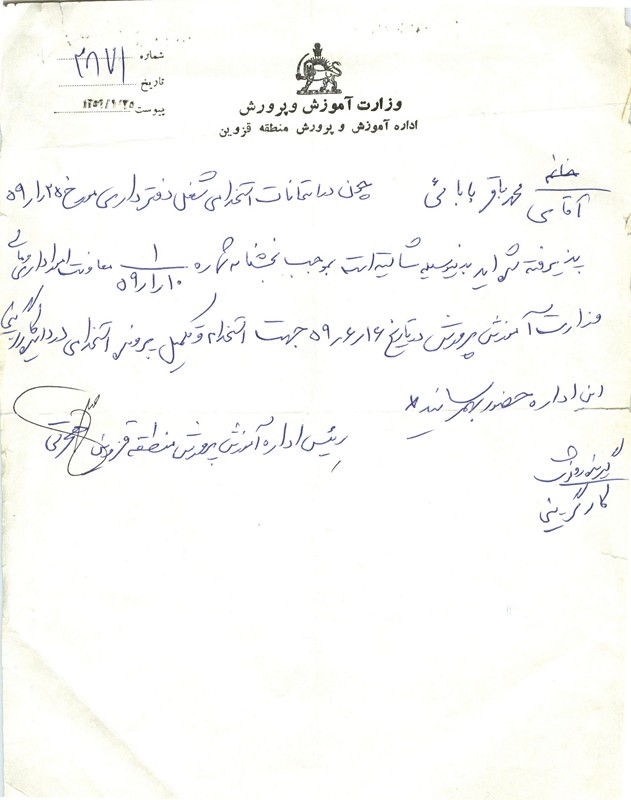 شماره ۳۸۷۱
تاریخ
پیوست ۱۳۵۹/۶/۲۵
وزارت آموزش و پرورش
اداره آموزش و پرورش منطقه قزوین
خانم
آقای محمدباقر بابائی چون در امتحانات استخدامی شغل دفترداری مورخ ۵۹/۱/۲۵
پذیرفته شده‌اید بدینوسیله شایسته است بموجب بخشنامه شماره ۱/۵۹/۱/۱۰ معاونت امور اداری و مالی
وزارت آموزش پرورش در تاریخ ۵۹/۶/۱۶ جهت استخدام و تکمیل پرونده استخدامی در دایره کارگزینی
این اداره حضور بهم رسانید
رئیس اداره آموزش پرورش منطقه قزوین
گیرنده رونوشت
کارگزینی